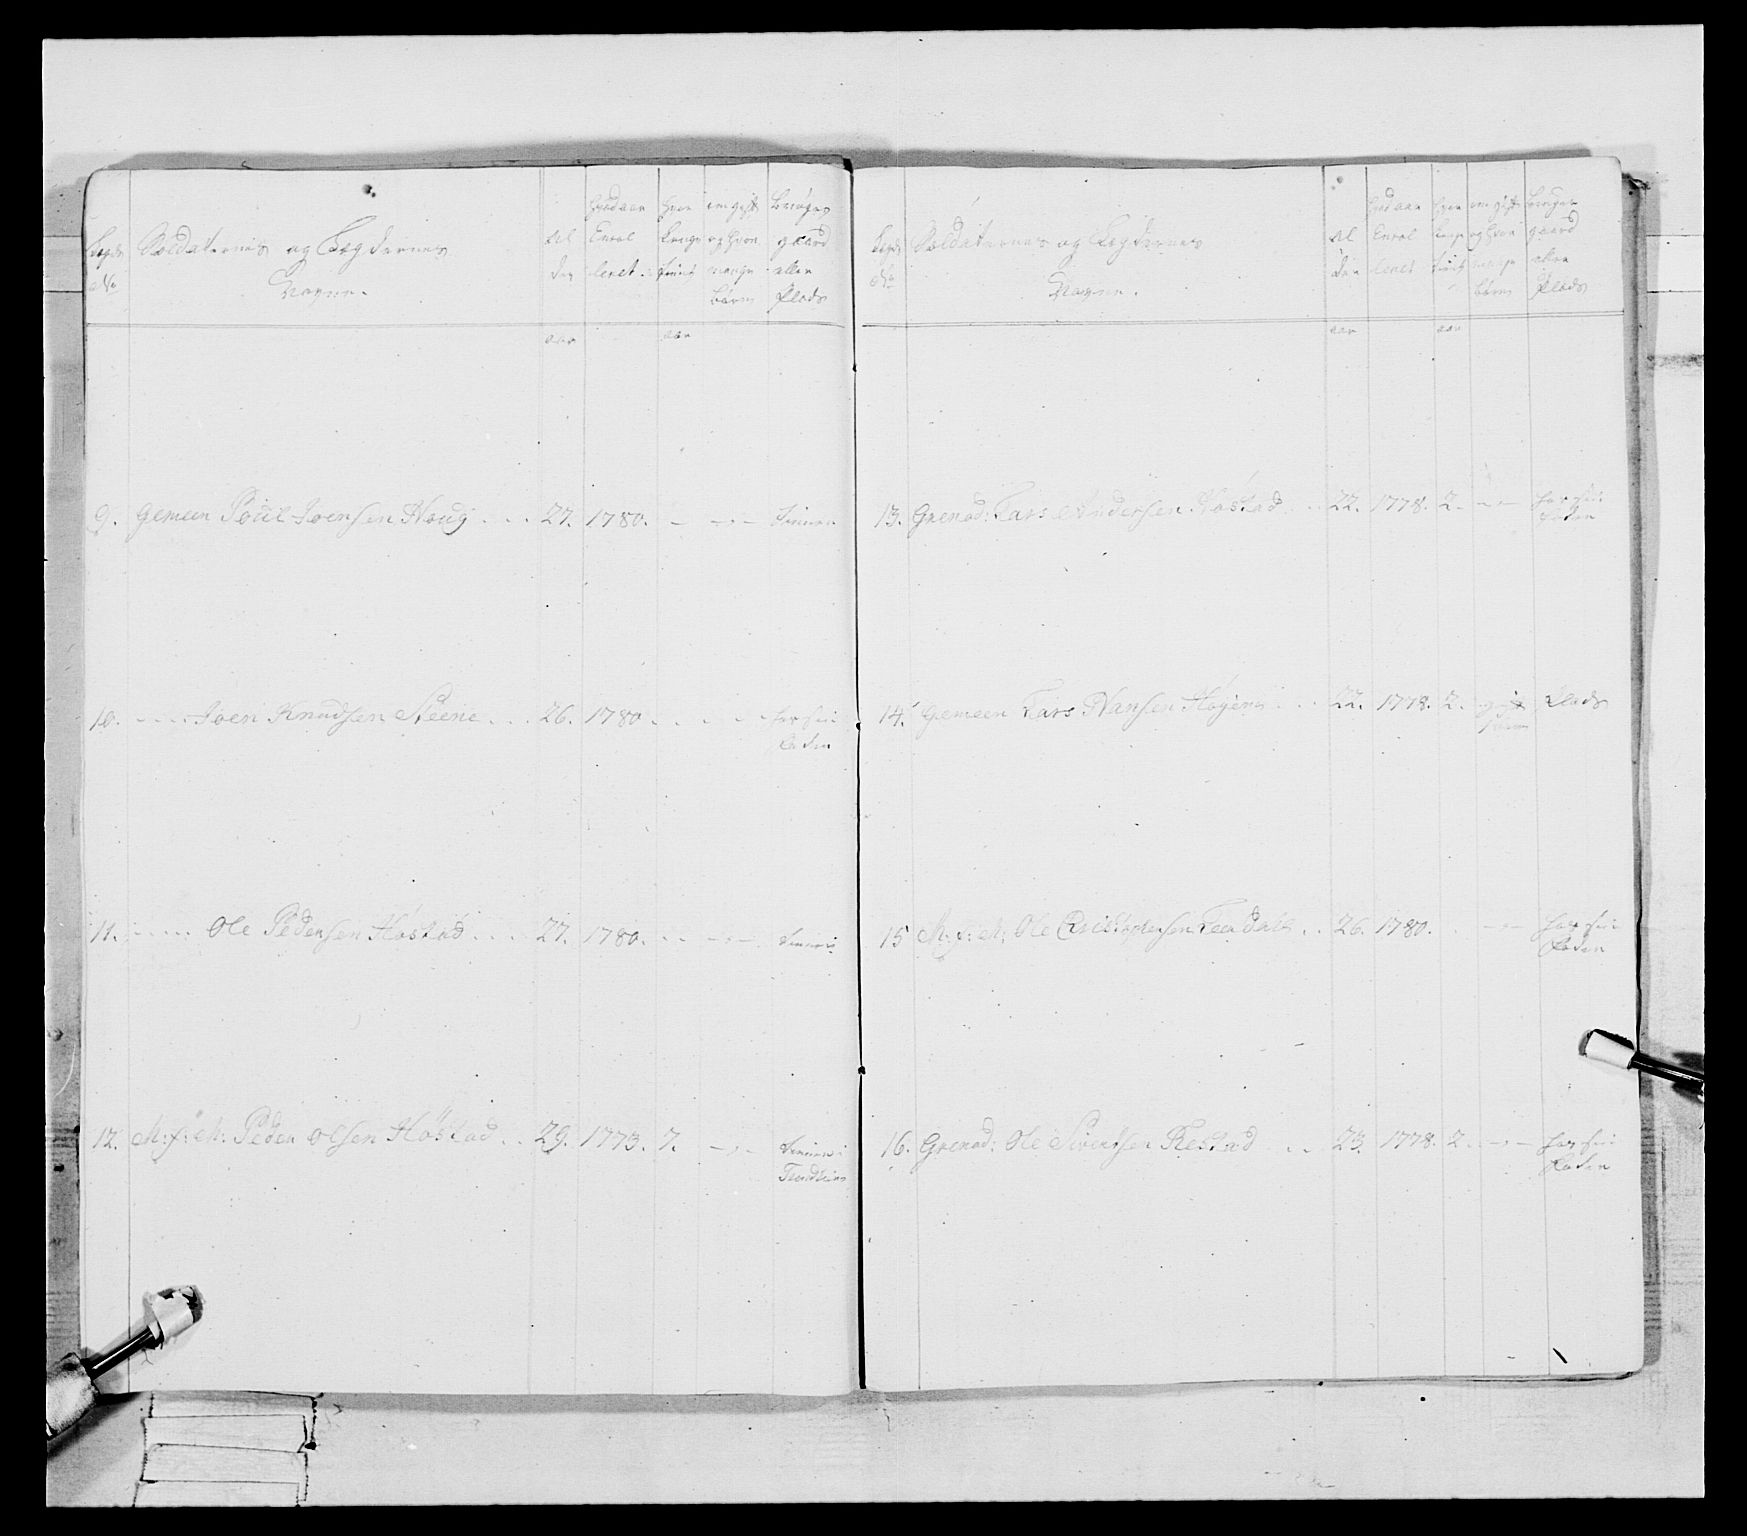 Lægds No Soldaternes og Lægdernes Navne. Al der Hvad aar Enrol leret. Hvor længe tient om gift og hvor mange børn bruger gaard eller Plads
aar aar
9. Gemeen Poul Joensen Houg . . . 27. 1780. - - - - tienner
10. - - - - Joen Knudsen Steene . . . 26. 1780. . . . . hos sin
Fader
11. - - - - - Ole Pedersen Höstad . . . 27. 1780. . . - - - tienner
12. M: f: M: Peder Olsen Höstad . . 29. 1773. 7. - - - tienner i
Lægds No Soldaternes og Lægdernes Navne. Al der Hvad aar Enrol leret Hvor længe tient om gift og hvor mange børn bruger gaard eller Plads
aar aar
13. Grenad: Lars Andersen Höstad . . 22. 1778. 2. - - - hos sin
Fader
14. Gemeen Lars Hansen Höyem . . . 22. 1778. 2. gift Plads
15 M: f: M: Ole Cristophersen . . 26. 1780. . - - - hos sin
Fader
16. Grenad: Ole Sivertsen Restad . . 23. 1778. 2. - - - hos sin
Fader